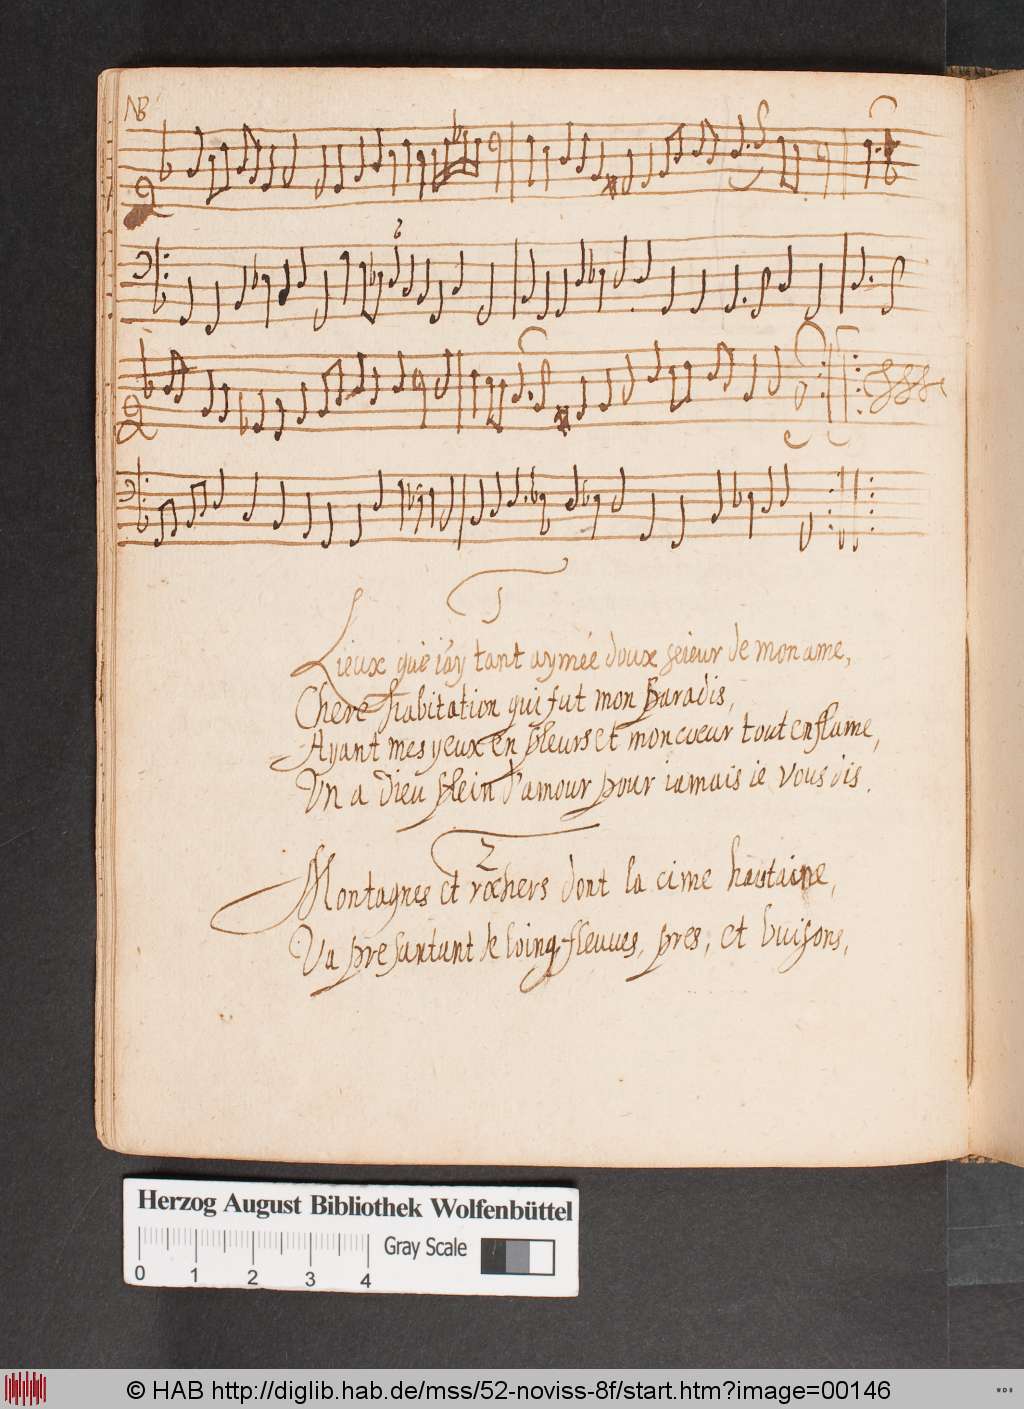 NB
6
1
Lieux que i'ay tant aymée doux seieur de mon ame,
Chere habitation qui fut mon paradis,
Ayant mes yeux en pleurs et mon cœur tout enflame,
Un a Dieu plein d'amour pour iamais ie vous dis.
2
Montagnes et rochers dont la cime hautaine,
Va presantant le loing fleuves, pres, et buisons,
Herzog August Bibliothek Wolfenbüttel
Gray Scale
0 1 2 3 4
© HAB http://diglib.hab.de/mss/52-noviss-8f/start.htm?image=00146